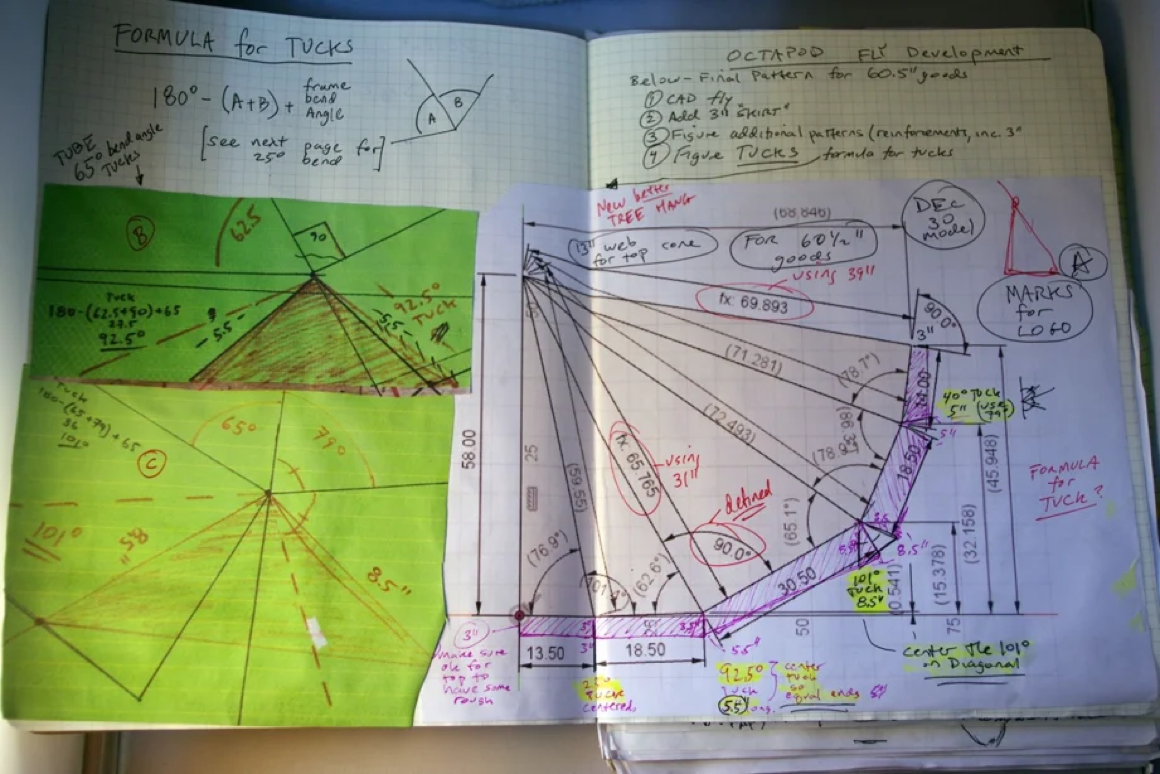 FORMULA for TUCKS
180° - (A+B) + frame bend Angle
A
B
[see next page for]
25° bend
TUBE
65° bend angle
Tucks
B
62.5
90
Tuck
180-(62.5+90)+65
27.5
92.5°
5.5"
5.5"
92.5°
TUCK
180-(65+79)+65
36
101°
65°
79°
C
101°
8.5"
8.5"
OCTAPOD FLY Development
Below - Final Pattern for 60.5" goods
① CAD fly
② Add 3" "SKIRT"
③ Figure additional patterns (reinforcements, inc. 3"
④ Figure TUCKS, formula for tucks
New better
TREE HANG
(68.846)
DEC
30
model
13" web
for top cone
FOR 60 1/2"
goods
using 39"
A
MARKS
for
LOGO
fx: 69.893
90.0°
3"
(71.281)
(78.7°)
14.00
40° TUCK
5" (use
79)
5"
(72.493)
18.50
58.00
25
(59.55)
fx: 65.765
using
31"
defined
90.0°
(65.1°)
(45.948)
FORMULA
for
TUCK?
(32.158)
(15.378)
(0.541)
8.5"
(76.9°)
(62.6°)
30.50
101°
TUCK
8.5"
50
75
3"
make sure
ok for
top to
have some
rough
13.50
18.50
3"
centered
5.5"
92.5°
Tuck
5.5" long.
center
tuck
so
equal ends
center the 101°
on Diagonal